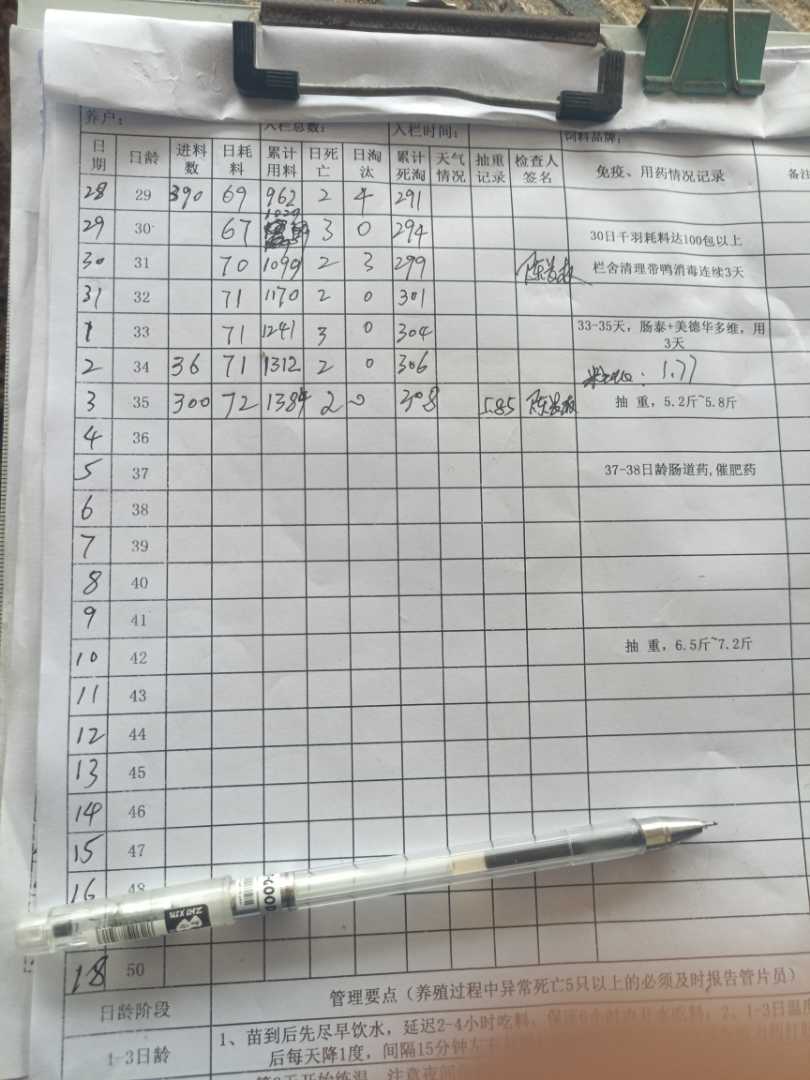 养户： 入栏总数： 入栏时间： 饲料品牌：
日期 日龄 进料数 日耗料 累计用料 日死亡 日淘汰 累计死淘 天气情况 抽重记录 检查人签名 免疫、用药情况记录 备注
28 29 390 69 962 2 4 291
29 30 67 1029 3 0 294 30日千羽耗料达100包以上
30 31 70 1099 2 3 299 栏舍清理带鸭消毒连续3天
31 32 71 1170 2 0 301
1 33 71 1241 3 0 304 33-35天，肠泰+美德华多维，用3天
2 34 36 71 1312 2 0 306 1.77
3 35 300 72 1384 2 0 308 5.85 抽 重，5.2斤~5.8斤
4 36
5 37 37-38日龄肠道药,催肥药
6 38
7 39
8 40
9 41
10 42 抽 重，6.5斤~7.2斤
11 43
12 44
13 45
14 46
15 47
16 48
18 50
日龄阶段 管理要点（养殖过程中异常死亡5只以上的必须及时报告管片员）
1-3日龄 1、苗到后先尽早饮水，延迟2-4小时吃料，
后每天降1度，间隔15分钟